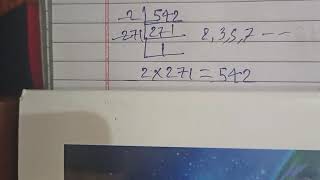 2 | 542
271 | 271 2,3,5,7 --
1
2 x 271 = 542